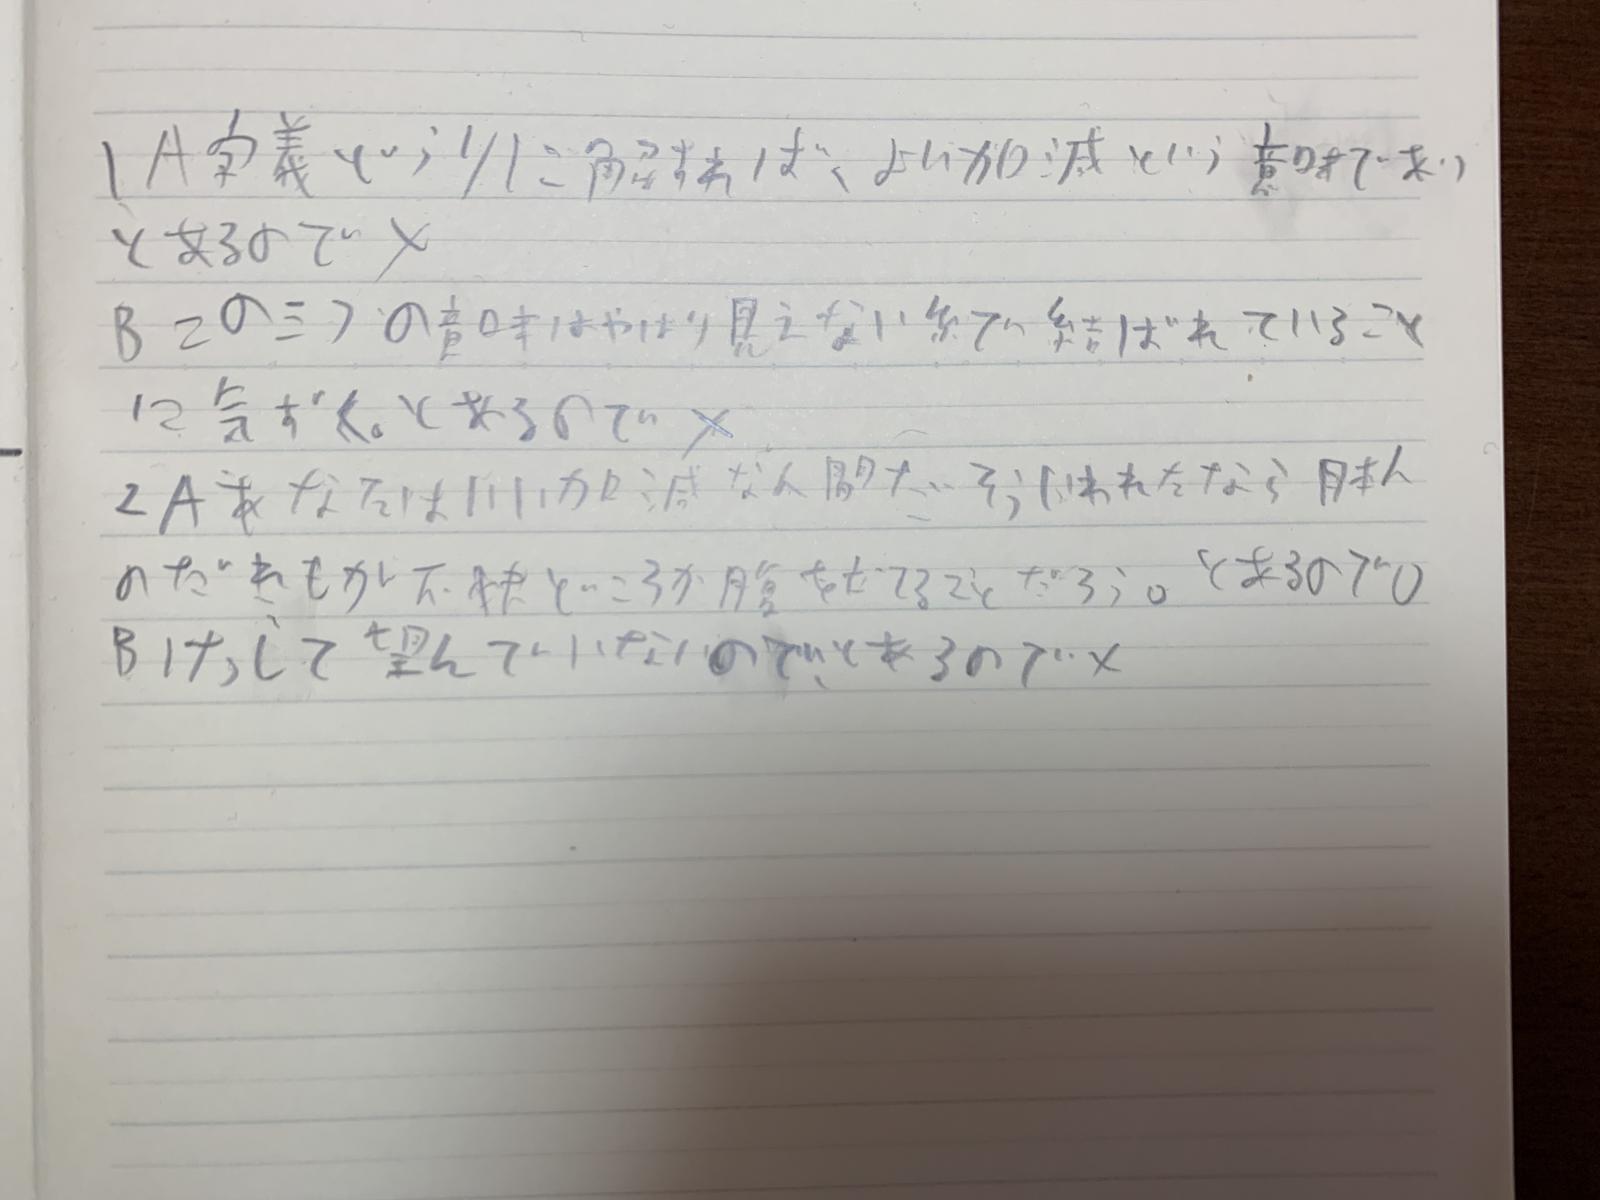 1A字義どうりに解すれば、よい加減という意味であり
とあるので×
Bこの三つの意味はやはり見えない糸で結ばれていること
に気ずく。とあるので×
2Aあなたはいい加減な人間だそういわれたなら日本人
のだれもが不快どころか腹をたてることだろう。とあるので○
Bけっして望んでいないので、とあるので×